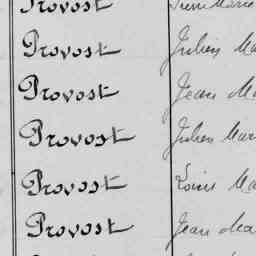 Provost Pierre Marie
Provost Julien Ma
Provost Jean Ma
Provost Julien Mar
Provost Louis Ma
Provost Jean Ma